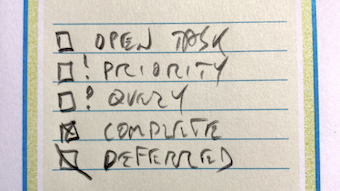 ☐ OPEN TASK
☐! PRIORITY
☐? QUERY
☒ COMPLETE
⍂ DEFERRED